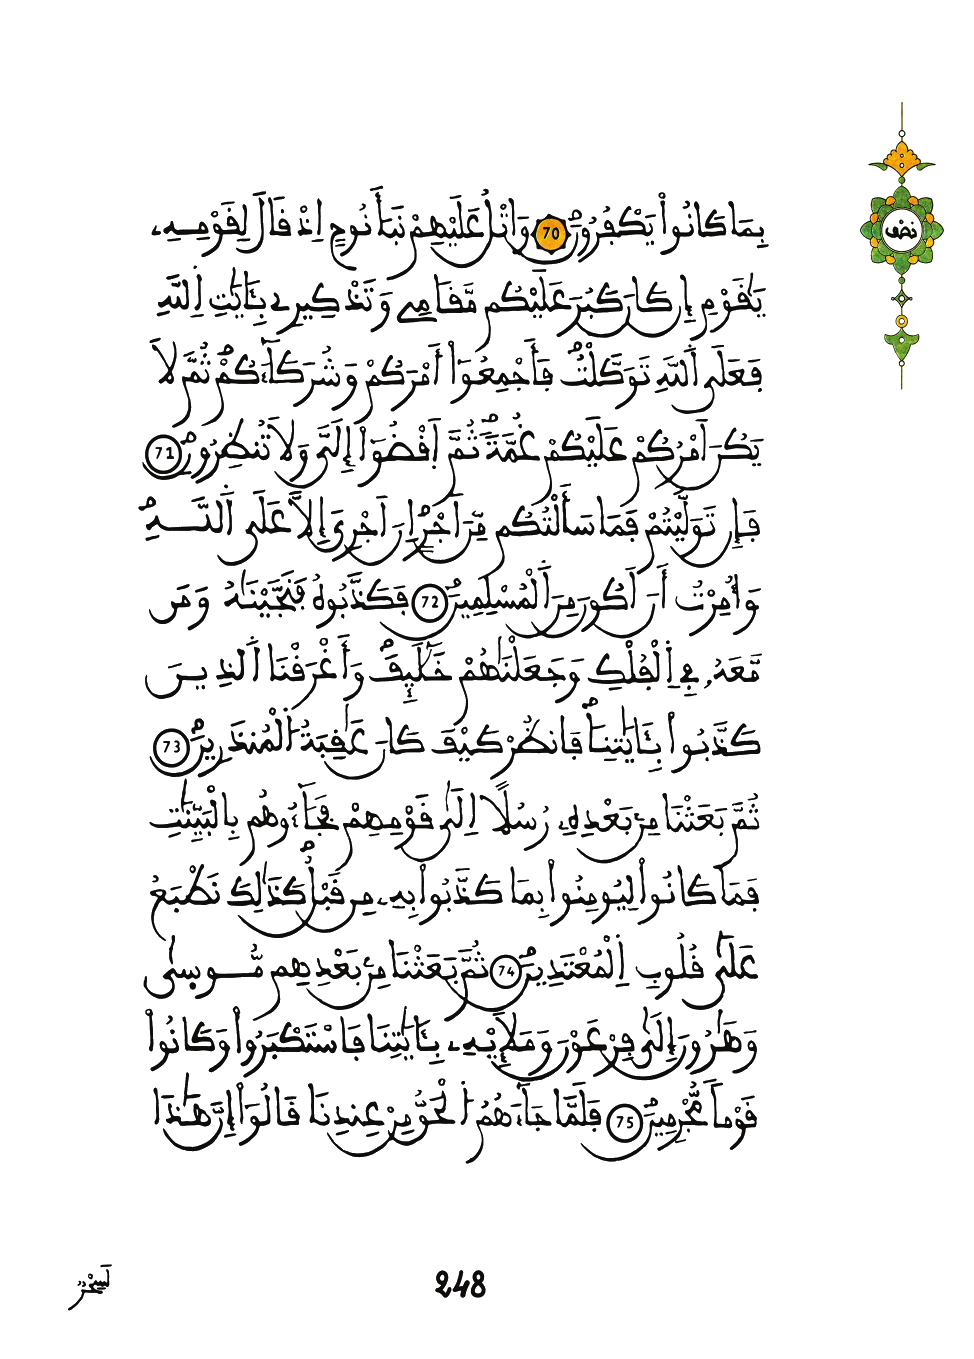 بِمَا كَانُوا۟ يَكْفُرُونَ 70 وَاتْلُ عَلَيْهِمْ نَبَأَ نُوحٍ اِذْ قَالَ لِقَوْمِهِۦ
يَٰقَوْمِ إِن كَانَ كَبُرَ عَلَيْكُم مَّقَامِے وَتَذْكِيرِے بِـَٔايَٰتِ اِ۬للَّهِ
فَعَلَى اَ۬للَّهِ تَوَكَّلْتُ فَأَجْمِعُوٓا۟ أَمْرَكُمْ وَشُرَكَآءَكُمْ ثُمَّ لَا
يَكُنَ اَمْرُكُمْ عَلَيْكُمْ غُمَّةً ثُمَّ اَ۪قْضُوٓا۟ إِلَىَّ وَلَا تُنظِرُونِ 71
فَإِن تَوَلَّيْتُمْ فَمَا سَأَلْتُكُم مِّنَ اَجْرٍ اِنَ اَجْرِىَ إِلَّا عَلَى اَ۬للَّهِ
وَأُمِرْتُ أَنَ اَكُونَ مِنَ اَ۬لْمُسْلِمِينَ 72 فَكَذَّبُوهُ فَنَجَّيْنَٰهُ وَمَن
مَّعَهُۥ فِے اِ۬لْفُلْكِ وَجَعَلْنَٰهُمْ خَلَٰٓئِفَ وَأَغْرَقْنَا اَ۬لذِينَ
كَذَّبُوا۟ بِـَٔايَٰتِنَا فَانظُرْ كَيْفَ كَانَ عَٰقِبَةُ اُ۬لْمُنذَرِينَ 73
ثُمَّ بَعَثْنَا مِنۢ بَعْدِهِۦ رُسُلًا اِلَىٰ قَوْمِهِمْ فَجَآءُوهُم بِالْبَيِّنَٰتِ
فَمَا كَانُوا۟ لِيُومِنُوا۟ بِمَا كَذَّبُوا۟ بِهِۦ مِن قَبْلُ كَذَٰلِكَ نَطْبَعُ
عَلَىٰ قُلُوبِ اِ۬لْمُعْتَدِينَ 74 ثُمَّ بَعَثْنَا مِنۢ بَعْدِهِم مُّوسِىٰ
وَهَٰرُونَ إِلَىٰ فِرْعَوْنَ وَمَلَإِيْهِۦ بِـَٔايَٰتِنَا فَاسْتَكْبَرُوا۟ وَكَانُوا۟
قَوْماً مُّجْرِمِينَ 75 فَلَمَّا جَآءَهُمُ اُ۬لْحَقُّ مِنْ عِندِنَا قَالُوٓا۟ إِنَّ هَٰذَا
نصف
248